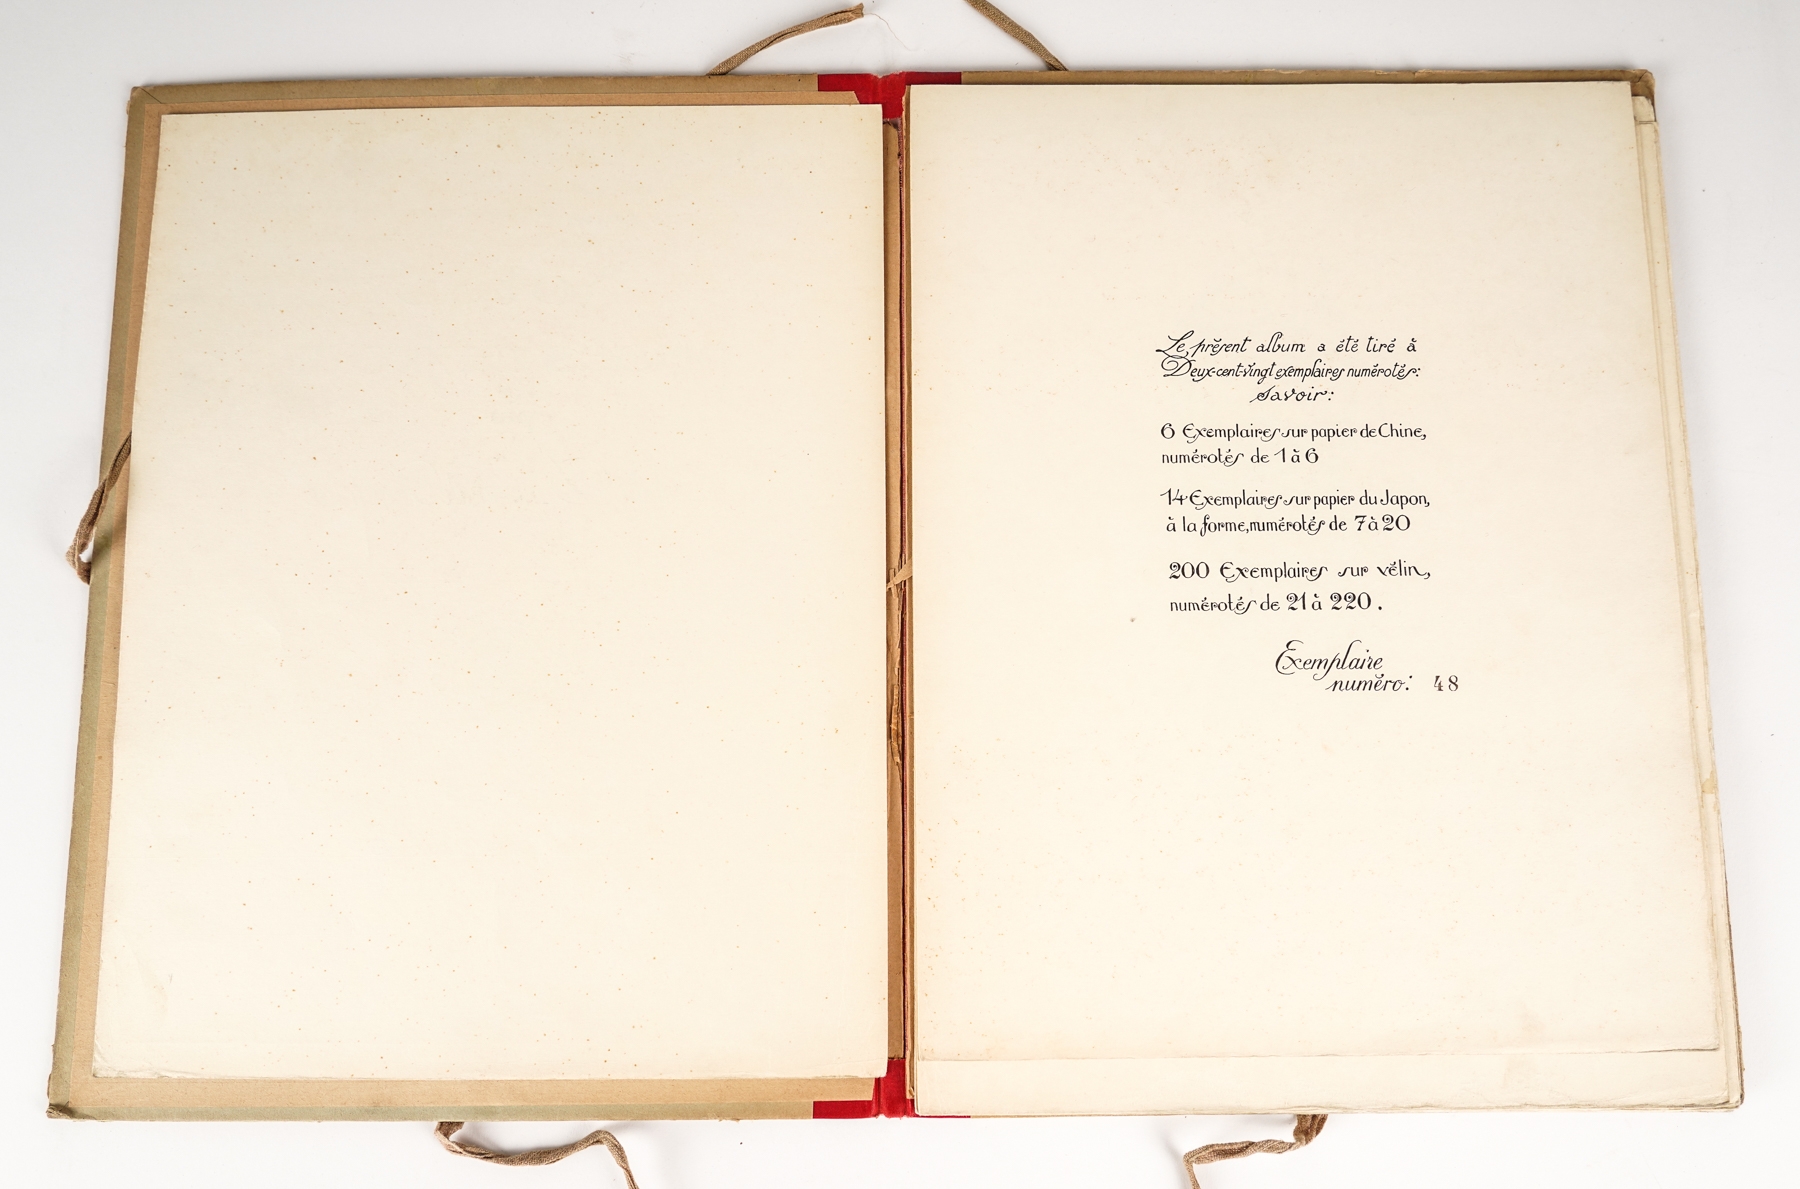 Le présent album a été tiré à
Deux-cent-vingt exemplaires numérotés:
savoir:
6 Exemplaires sur papier de Chine,
numérotés de 1 à 6
14 Exemplaires sur papier du Japon,
à la forme, numérotés de 7 à 20
200 Exemplaires sur vélin,
numérotés de 21 à 220.
Exemplaire
numéro: 48